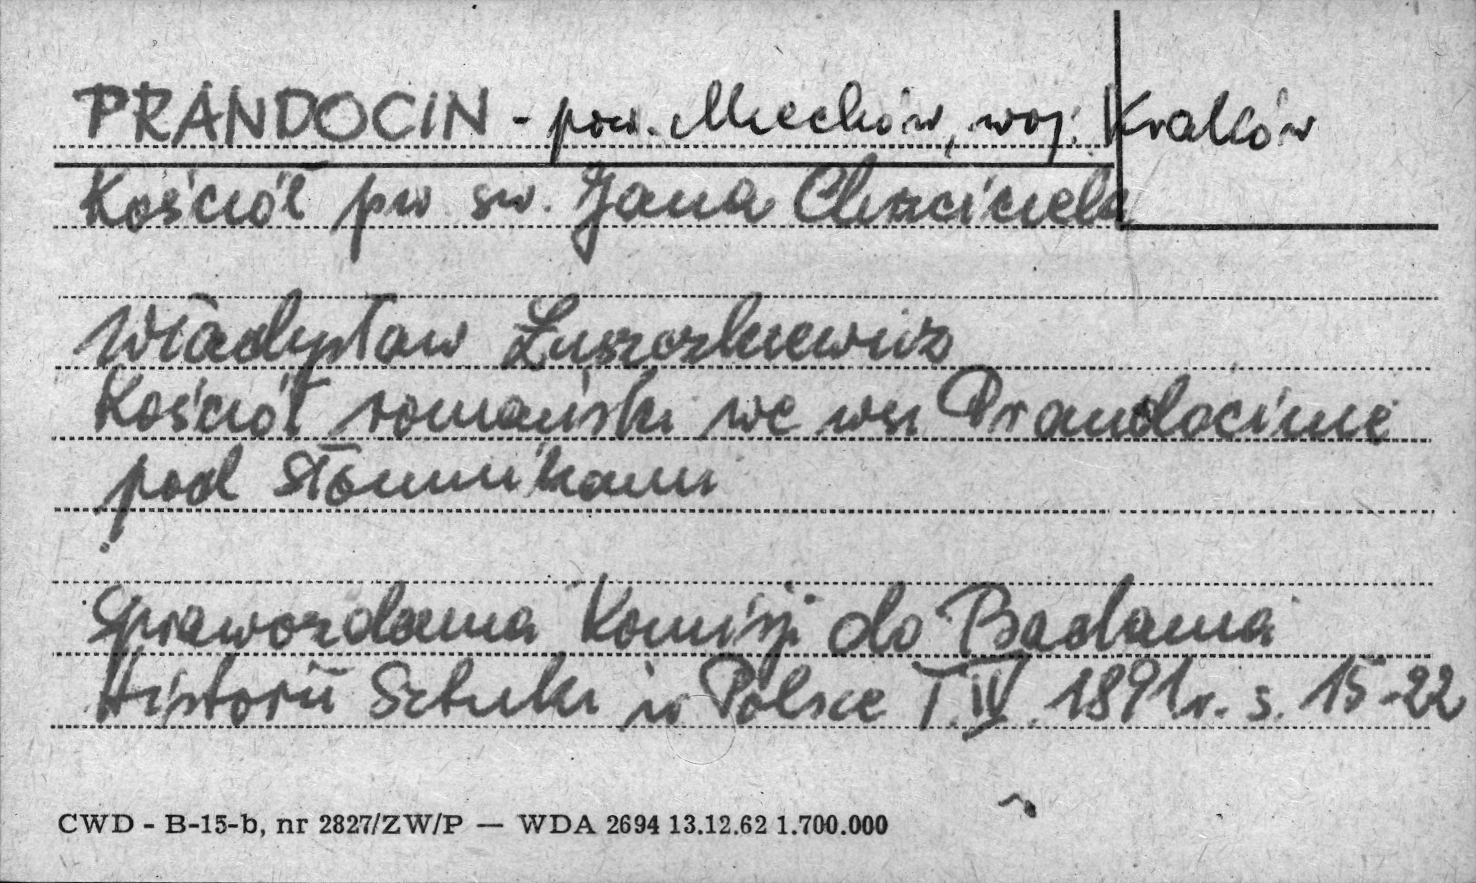 PRANDOCIN - pow. Miechów, woj. Kraków
Kościół pw. św. Jana Chrzciciela
Władysław Łuszczkiewicz
Kościół romański we wsi Prandocinie
pod Słomnikami
Sprawozdania Komisji do Badania
Historii Sztuki w Polsce T. IV. 1891r. s. 15-22
CWD - B-15-b, nr 2827/ZW/P — WDA 2694 13.12.62 1.700.000